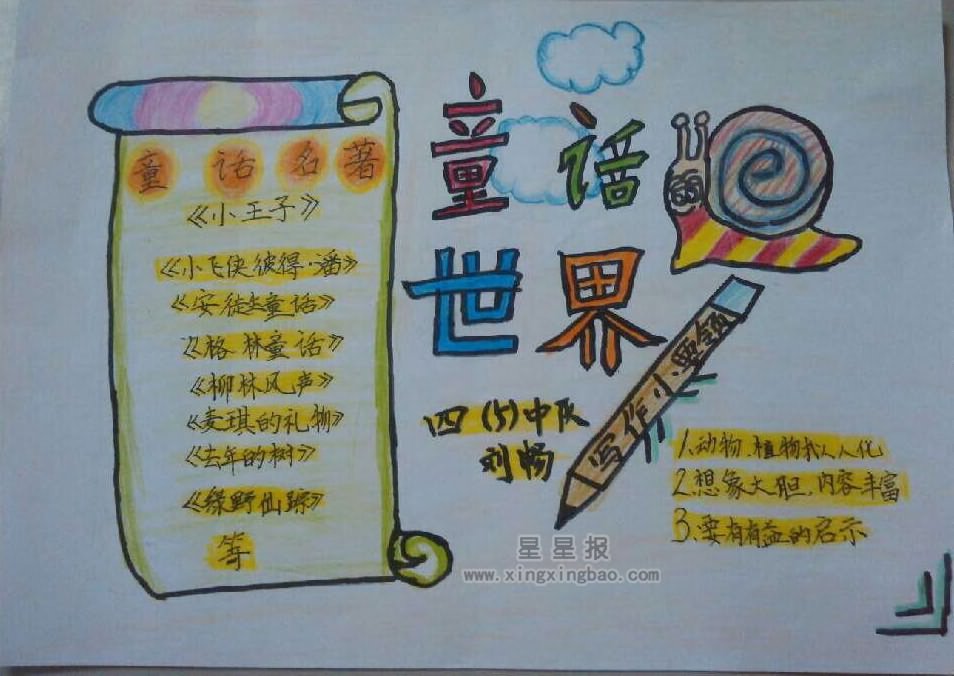 童话名著
《小王子》
《小飞侠彼得·潘》
《安徒生童话》
《格林童话》
《柳林风声》
《麦琪的礼物》
《去年的树》
《绿野仙踪》
等
童话
世界
四(5)中队
刘畅
写作小要领
1.动物、植物拟人化
2.想象大胆,内容丰富
3.要有有益的启示
星星报
www.xingxingbao.com